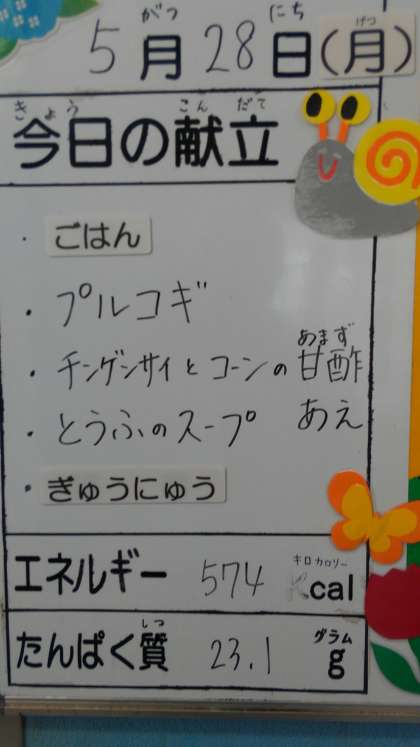 5月28日(月)
がつ にち げつ
今日の献立
きょう こんだて
・ごはん
・プルコギ
・チンゲンサイとコーンの甘酢
あまず
あえ
・とうふのスープ
・ぎゅうにゅう
エネルギー 574 Kcal
キロカロリー
たんぱく質 23.1 g
しつ グラム